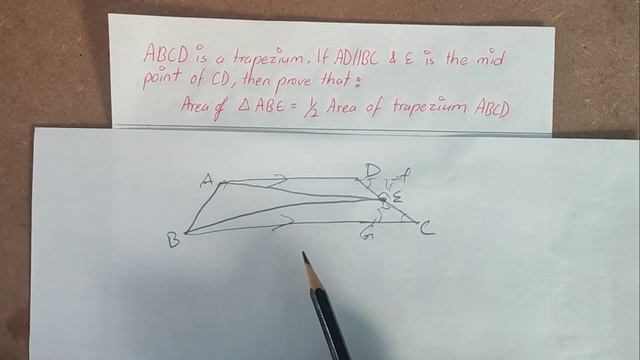 ABCD is a trapezium. If AD//BC & E is the mid
point of CD, then prove that :
Area of △ ABE = 1/2 Area of trapezium ABCD
A D F
E
B G C